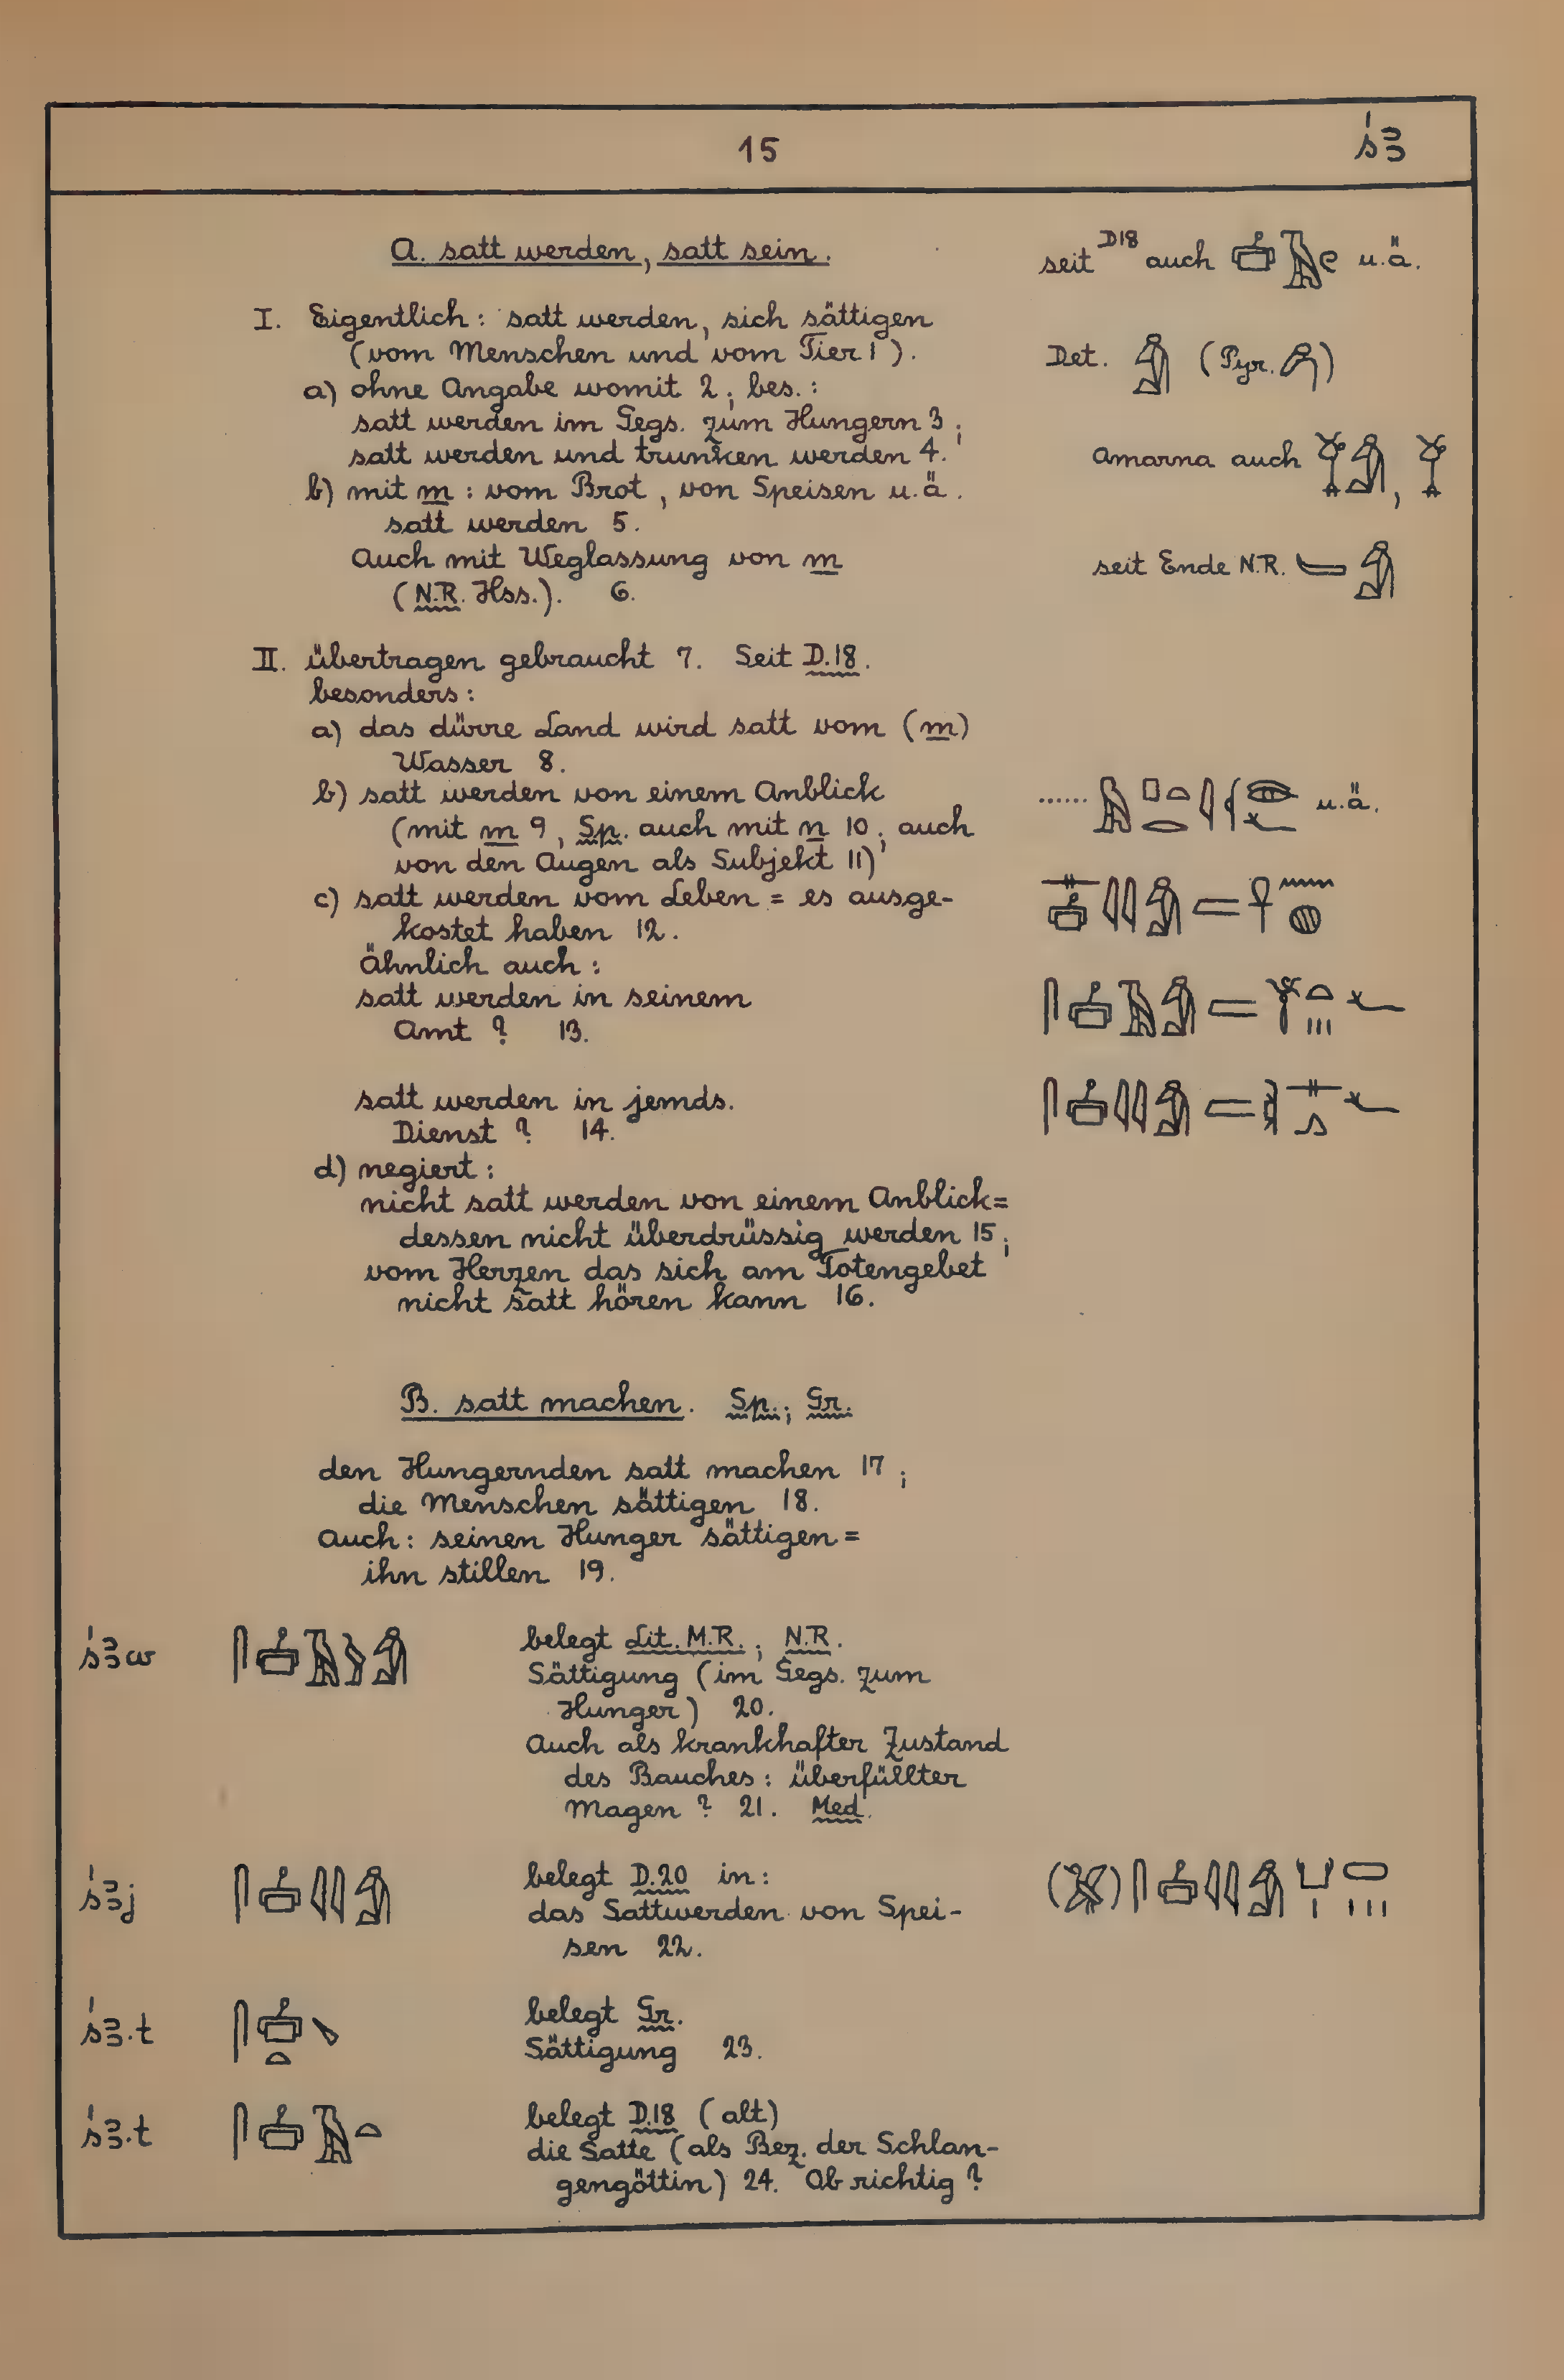 15
śꜣ
A. satt werden, satt sein.
seit D18 auch u.ä.
I. Eigentlich: satt werden, sich sättigen
(vom Menschen und vom Tier 1).
Det. (Pyr. )
a) ohne Angabe womit 2; bes.:
satt werden im Gegs. zum Hungern 3;
satt werden und trunken werden 4.
Amarna auch ,
b) mit m: vom Brot, von Speisen u.ä.
satt werden 5.
Auch mit Weglassung von m
(N.R. Hss.). 6.
seit Ende N.R.
II. übertragen gebraucht 7. Seit D.18.
besonders:
a) das dürre Land wird satt vom (m)
Wasser 8.
b) satt werden von einem Anblick
(mit m 9, Sp. auch mit n 10; auch
von den Augen als Subjekt 11)
...... u.ä.
c) satt werden vom Leben = es ausge-
kostet haben 12.
Ähnlich auch:
satt werden in seinem
Amt? 13.
satt werden in jemds.
Dienst? 14.
d) negiert:
nicht satt werden von einem Anblick =
dessen nicht überdrüssig werden 15;
vom Herzen das sich am Totengebet
nicht satt hören kann 16.
B. satt machen. Sp.; Gr.
den Hungernden satt machen 17;
die Menschen sättigen 18.
Auch: seinen Hunger sättigen =
ihn stillen 19.
śꜣw
belegt Lit. M.R.; N.R.
Sättigung (im Gegs. zum
Hunger) 20.
Auch als krankhafter Zustand
des Bauches: überfüllter
Magen? 21. Med.
śꜣj
belegt D.20 in:
das Sattwerden von Spei-
sen 22.
śꜣ.t
belegt Gr.
Sättigung 23.
śꜣ.t
belegt D.18 (alt)
die Satte (als Bez. der Schlan-
gengöttin) 24. Ob richtig?